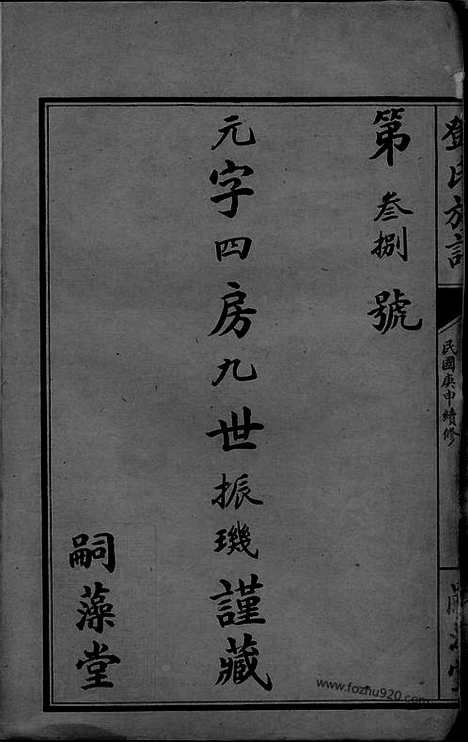 鄧氏族譜
民國庚申續修
嗣藻堂
第叁捌號
元字四房九世振璣謹藏
嗣藻堂
www.fozhu920.com